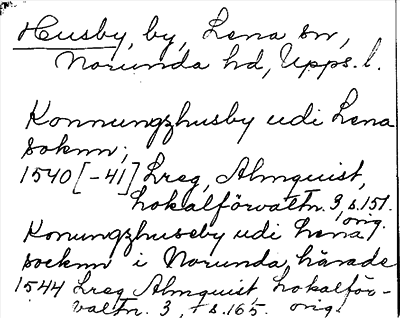 Husby, by, Lena sn,
Norunda hd, Upps. l.
Konnungzhusby udi Lena
soknn;
1540 [-41] Lreg, Almquist,
Lokalförvaltn. 3, s. 151.
orig.
Konungzhuseby udi Lena
socknn i Norunda härade
1544 Lreg Almquist Lokalför-
valtn. 3, s. 165. orig.